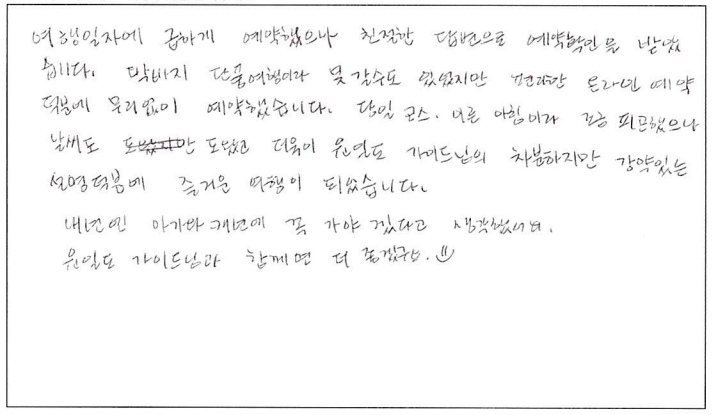 여행일자에 급하게 예약했으나 친절한 답변으로 예약확인을 받았
습니다. 막바지 단풍여행이라 못 갈수도 있었지만 편리한 온라인 예약
덕분에 무리없이 예약했습니다. 당일 코스. 이른 아침이라 조금 피곤했으나
날씨도 도왔고 더욱이 원일도 가이드님의 차분하지만 강약있는
설명덕분에 즐거운 여행이 되었습니다.
내년엔 아가와 꼭 가야 겠다고 생각했어요.
원일도 가이드님과 함께면 더 좋겠구요.